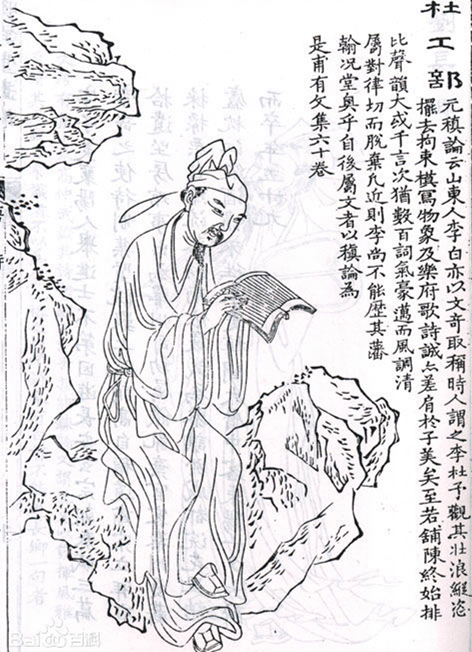 杜工部
元稹論云山東人李白亦以文奇取稱時人謂之李杜予觀其壯浪縱恣
擺去拘束模寫物象及樂府歌詩誠亦差肩扵子美矣至若鋪陳終始排
比聲韻大或千言次猶數百詞氣豪邁而風調清
屬對律切而脫棄凡近則李尚不能歷其藩
翰况堂奧乎自後屬文者以稹論為
是甫有文集六十卷
Bai百科